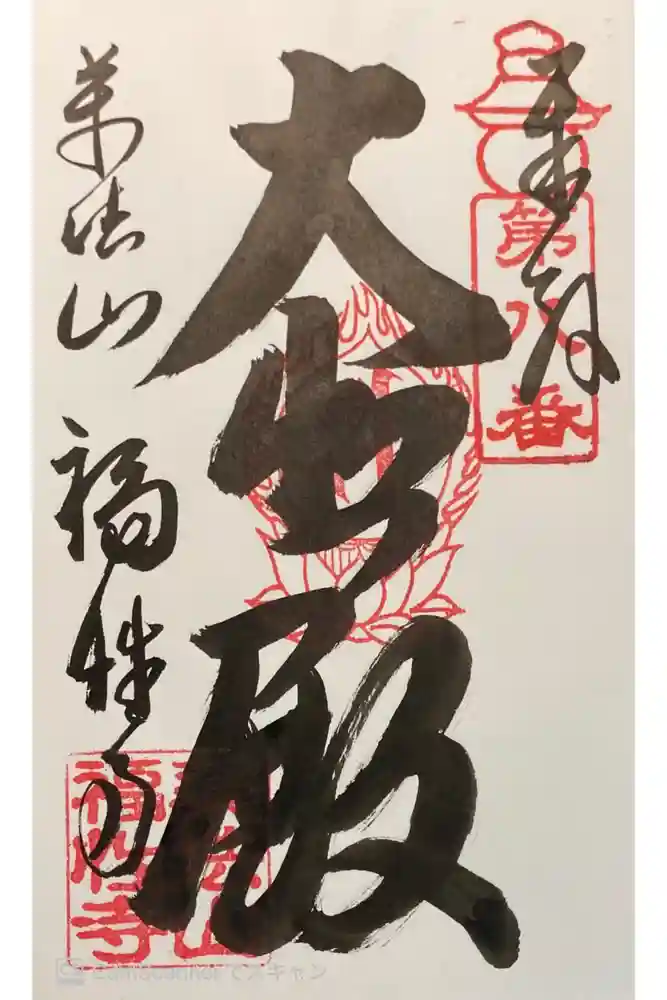 奉拝
第八番
大悲殿
法山
福性寺
法山
福性寺
CamScanner でスキャン